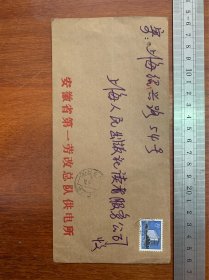 寄:上海绍兴路54号
上海人民出版社读者服务公司
收
安徽省第一劳改总队供电所